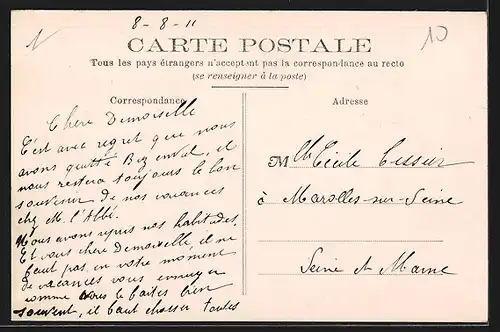 8-8-11
10
CARTE POSTALE
Tous les pays étrangers n'acceptent pas la correspondance au recto
(se renseigner à la poste)
Correspondance
Chère Demoiselle
C'est avec regret que nous
avons quitté Bezenval, il
nous restera toujours le bon
souvenir de nos vacances
chez M. l'Abbé.
Nous avons repris nos habitudes,
Et vous chère Demoiselle, il ne
faut pas, en votre moment
de vacances vous ennuyer
comme vous le faites bien
souvent, il faut chasser toutes
Adresse
Mlle Cécile
à Marolles-sur-Seine
Seine et Marne